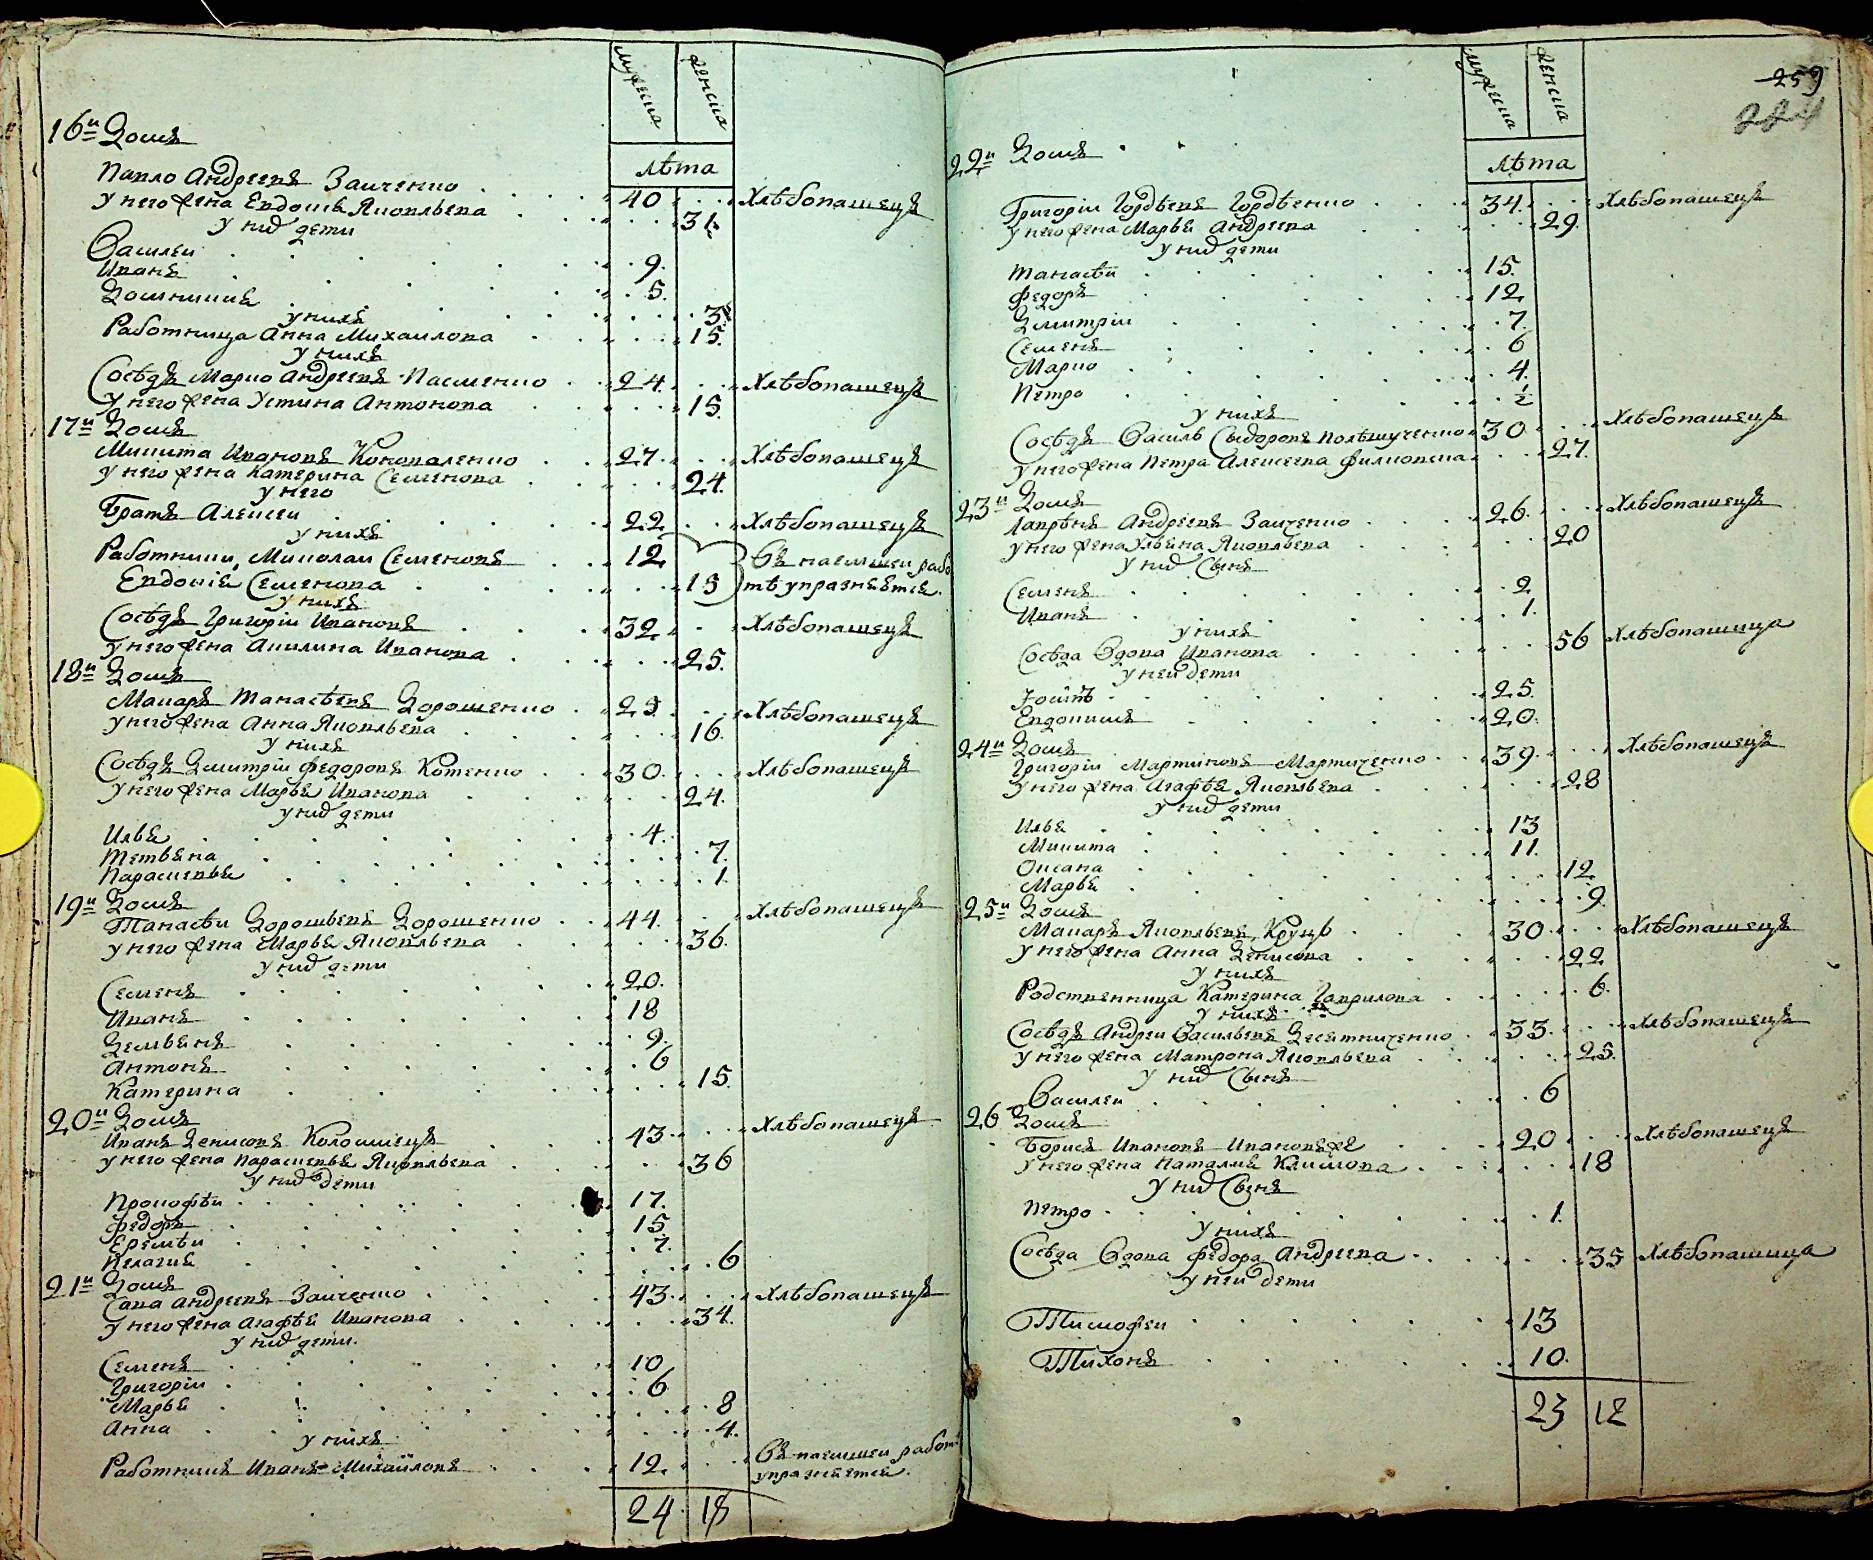 мужеска женска
лѣта
16й Домъ
Павло Андреевъ Заиченко 40 Хлѣбопашецъ
у него жена Евдокія Яковлева 31
у них дети
Василеи 9
Иванъ 5
Домникия 3
у нихъ
Работница Анна Михаилова 15
у нихъ
Сосѣдъ Марко Андреевъ Пасменко 24 Хлѣбопашецъ
у него жена Устина Антонова 15
17й Домъ
Микита Ивановъ Коноваленко 27 Хлѣбопашецъ
у него жена Катерина Семенова 24
у него
Братъ Алексеи 22 Хлѣбопашецъ
у нихъ
Работники, Миколаи Семеновъ 12 Въ наемшеи рабо
Евдокія Семенова 15 тѣ упражняются
у нихъ
Сосѣдъ Григоріи Ивановъ 32 Хлѣбопашецъ
у него жена Акилина Иванова 25
18й Домъ
Макаръ Танасѣевъ Дорошенко 25 Хлѣбопашецъ
у него жена Анна Яковлева 16
у нихъ
Сосѣдъ Дмитріи Федоровъ Котенко 30 Хлѣбопашецъ
у него жена Марья Иванова 24
у них дети
Илья 4
Тетьяна 7
Парасковья 1
19й Домъ
Танасѣи Дорошьевъ Дорошенко 44 Хлѣбопашецъ
у него жена Марья Яковлева 36
у них дети
Семенъ 20
Иванъ 18
Демьянъ 9
Антонъ 6
Катерина 15
20й Домъ
Иванъ Денисовъ Коломиецъ 43 Хлѣбопашецъ
у него жена Парасковья Яковлева 36
у них дети
Прокофѣи 17
Федоръ 15
Еремѣи 7
Пелагия 6
21й Домъ
Сава Андреевъ Заиченко 43 Хлѣбопашецъ
у него жена Агафья Иванова 34
у них дети
Семенъ 10
Григоріи 6
Марья 8
Анна 4
у нихъ
Работникъ Иванъ Михаиловъ 12 Въ наемшеи работ
упражняется
24 18
259
224
мужеска женска
лѣта
22й Домъ
Григоріи Гордѣевъ Гордѣенко 34 Хлѣбопашецъ
у него жена Марья Андреева 29
у них дети
Танасѣи 15
Федоръ 12
Дмитріи 7
Семенъ 6
Марко 4
Петро ½
у нихъ
Сосѣдъ Василь Сыдоровъ Полѣщученко 30 Хлѣбопашецъ
у него жена Петра Алексеева Филковска 27
23й Домъ
Лаврѣнъ Андреевъ Заиченко 26 Хлѣбопашецъ
у него жена Ульяна Яковлева 20
у них Сынъ
Семенъ 2
Иванъ 1
у нихъ
Сосѣда Вдова Иванова 56 Хлѣбопашица
у неи дети
Іосипъ 25
Евдокимъ 20
24й Домъ
Григоріи Мартиновъ Мартиченко 39 Хлѣбопашецъ
у него жена Агафья Яковлева 28
у них дети
Илья 13
Микита 11
Оксана 12
Марья 9
25й Домъ
Макаръ Яковлевъ Круць 30 Хлѣбопашецъ
у него жена Анна Денисова 22
у нихъ
Родственница Катерина Гаврилова 6
у нихъ
Сосѣдъ Андреи Васильевъ Десятниченко 33 Хлѣбопашецъ
у него жена Матрона Яковлева 25
у них Сынъ
Василеи 6
26 Домъ
Борисъ Ивановъ 20 Хлѣбопашецъ
у него жена Наталия Климова 18
у них Сынъ
Петро 1
у нихъ
Сосѣда Вдова Федора Андреева 35 Хлѣбопашица
у неи дети
Тимофеи 13
Тихонъ 10
23 12